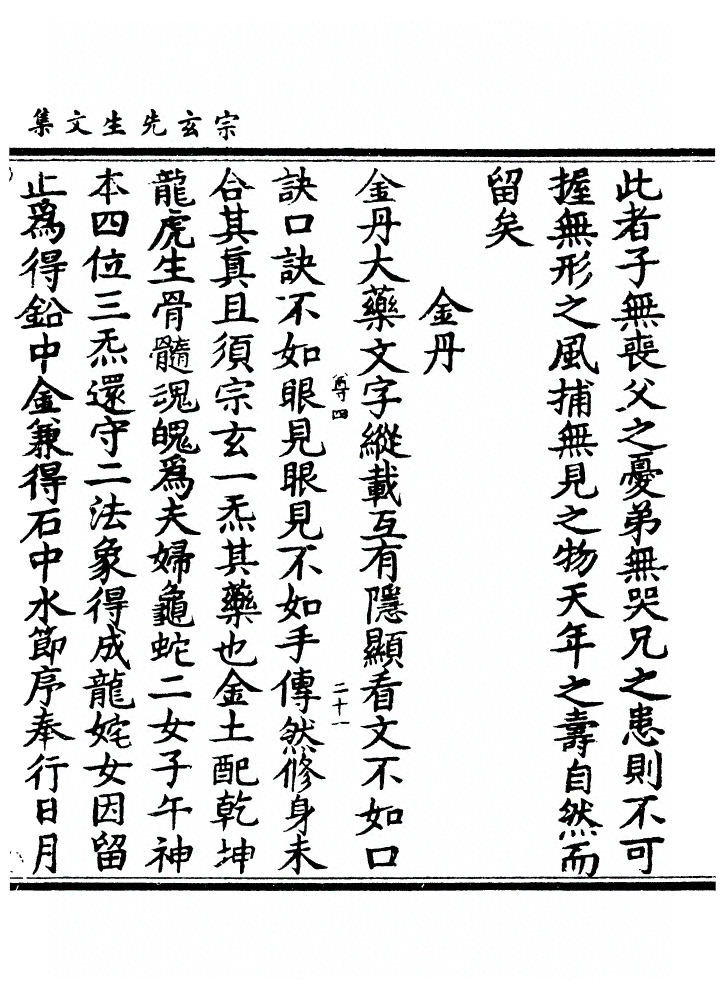 宗玄先生文集
此者子無喪父之憂弟無哭兄之患則不可
握無形之風捕無見之物天年之壽自然而
留矣
金丹
金丹大藥文字縱載互有隱顯看文不如口
尊四 二十一
訣口訣不如眼見眼見不如手傳然修身未
合其真且須宗玄一炁其藥也金土配乾坤
龍虎生骨髓魂魄爲夫婦龜蛇二女子午神
本四位三炁還守二法象得成龍姹女因留
止爲得鉛中金兼得石中水節序奉行日月